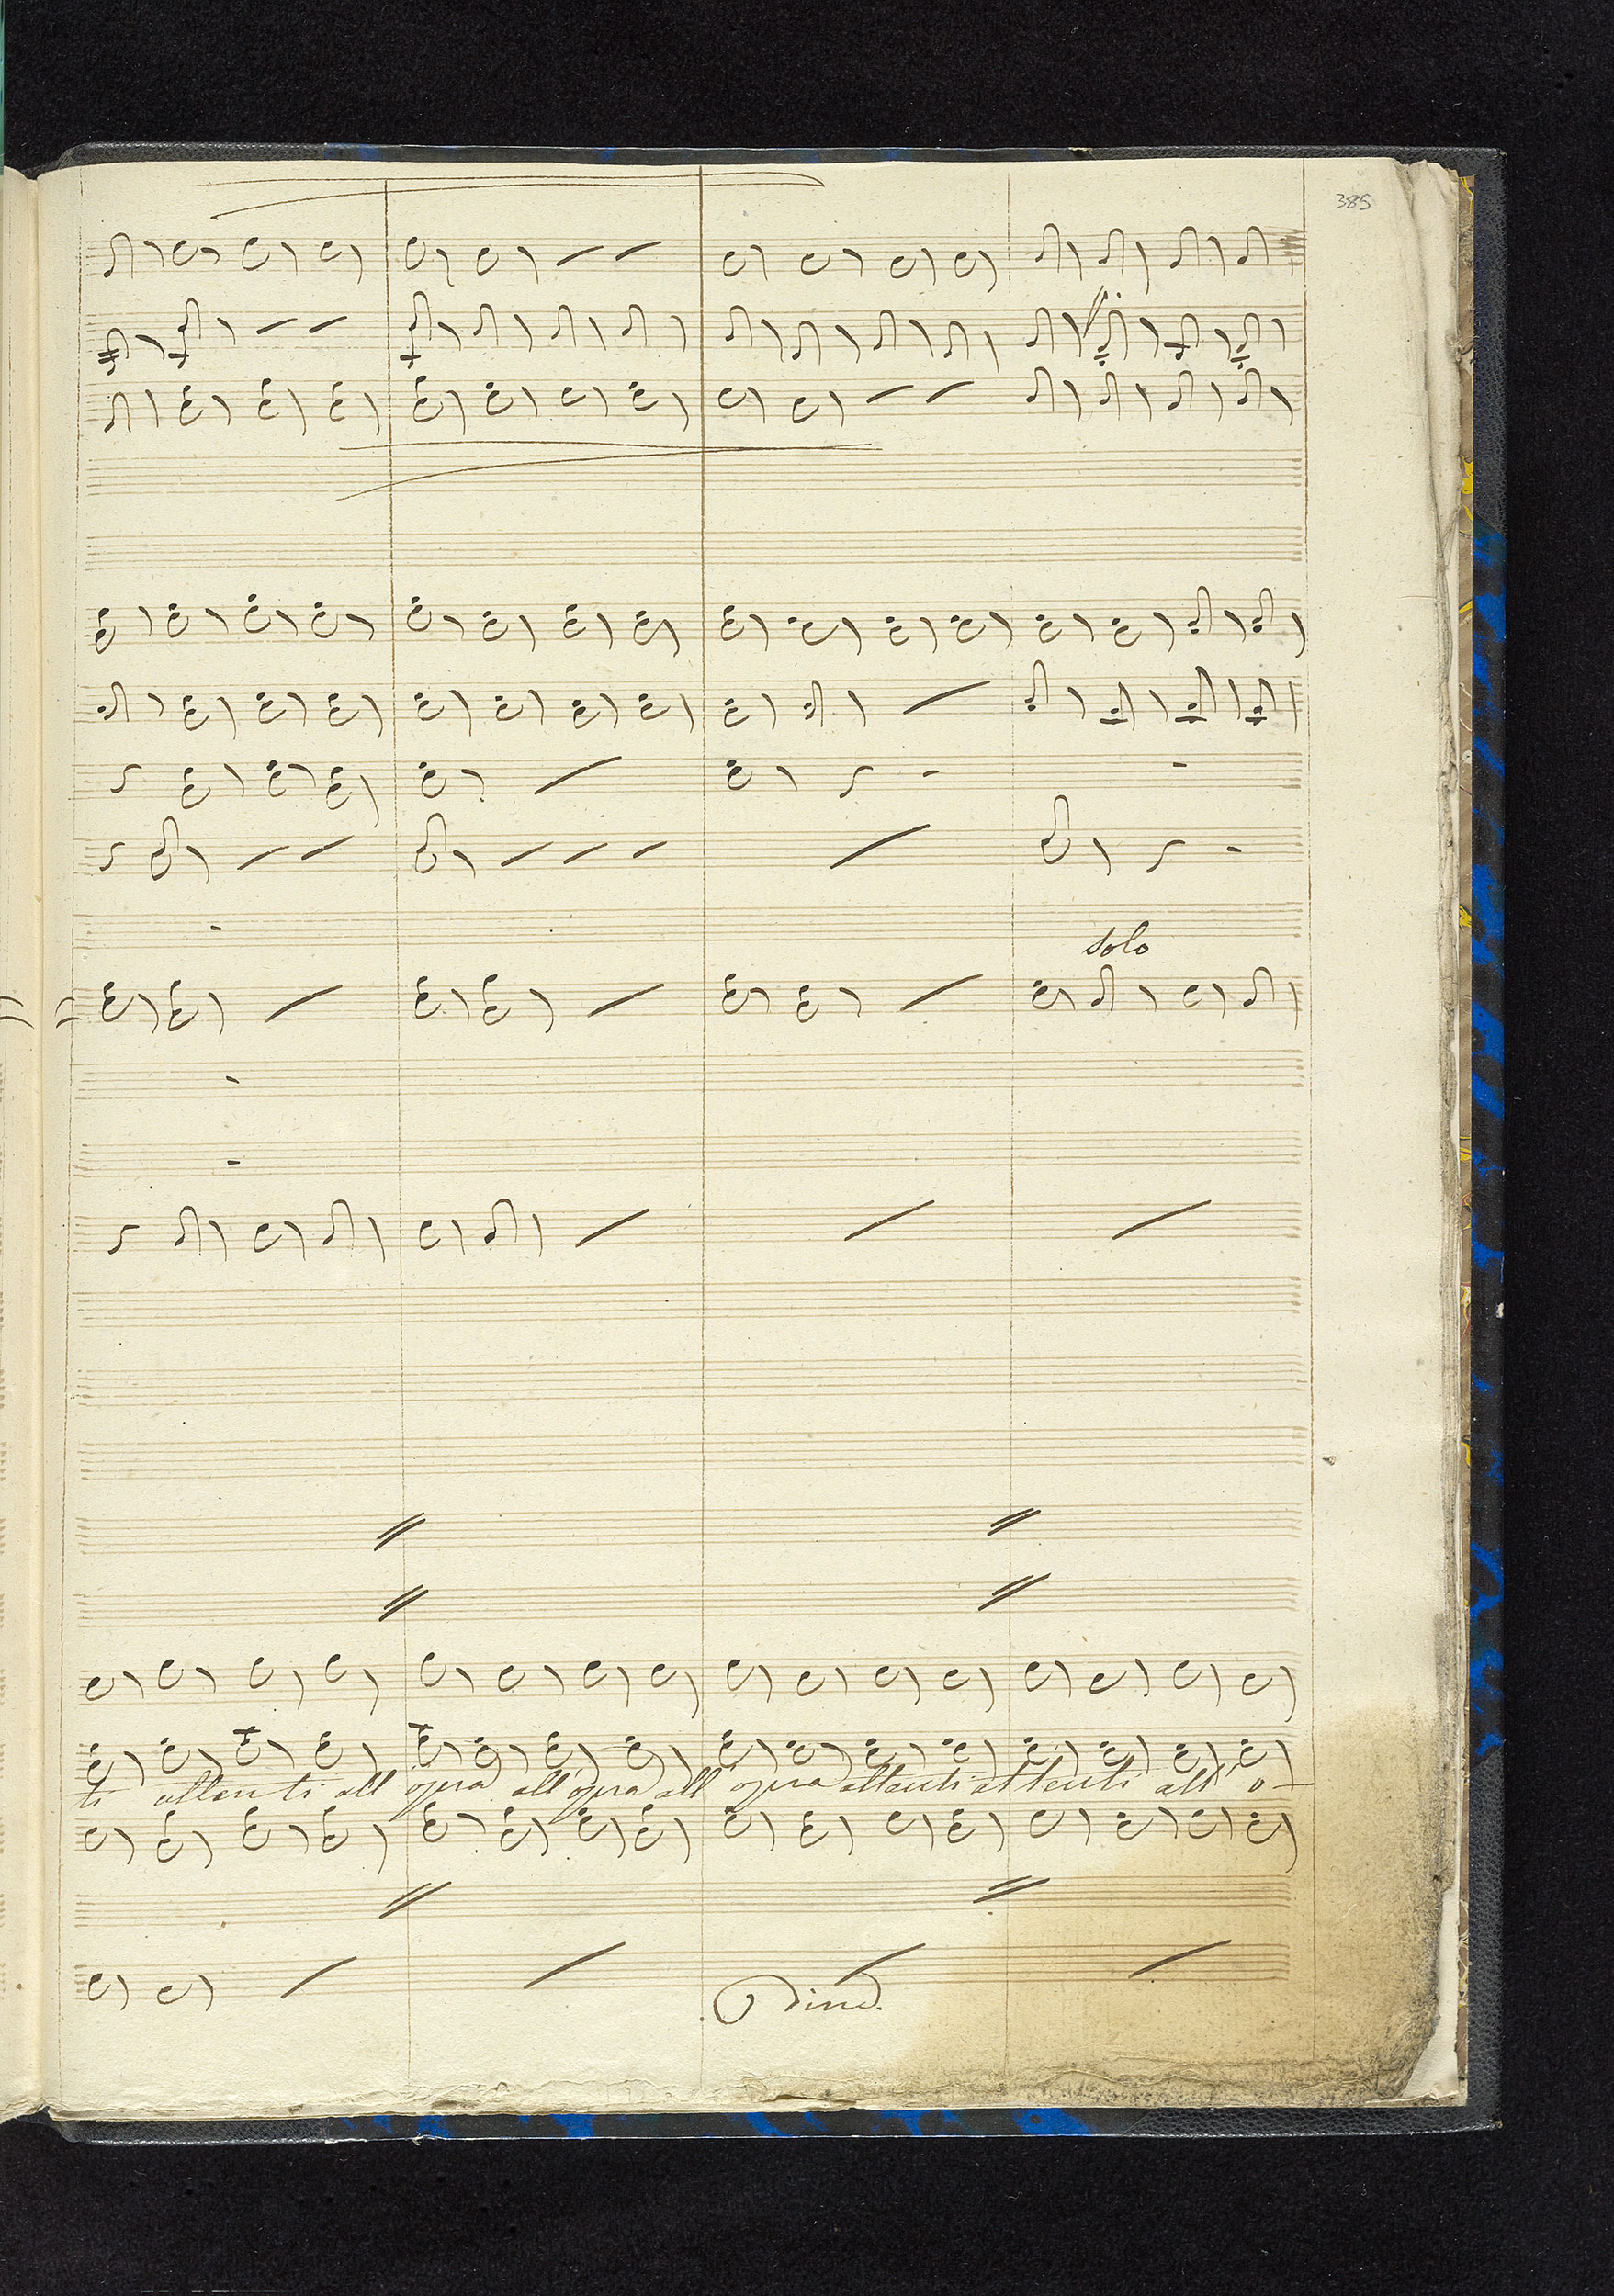 385
solo
ti attenti all' opra all' opra all' opra attenti attenti all' o-